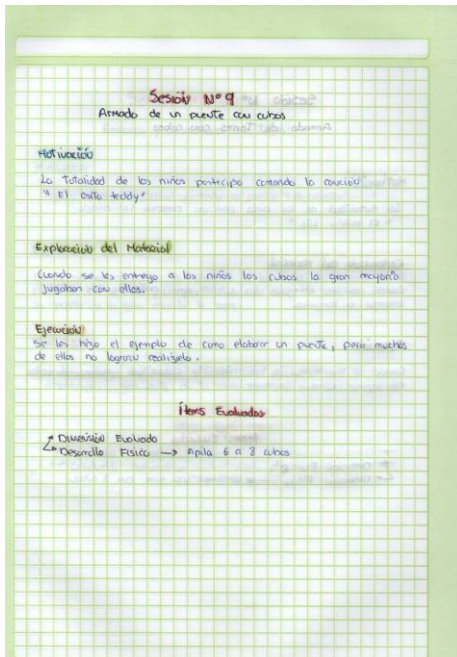 Sesión N° 9
Armado de un puente con cubos
Motivación
La totalidad de los niños participo cantando la canción
"El osito teddy"
Exploración del Material
Cuando se les entrego a los niños los cubos la gran mayoría
jugaban con ellos.
Ejecución
Se les hizo el ejemplo de como elaborar un puente, pero muchos
de ellos no lograron realizarlo.
Ítems Evaluados
Dimensión Evaluada
Desarrollo Físico → Apila 6 a 8 cubos